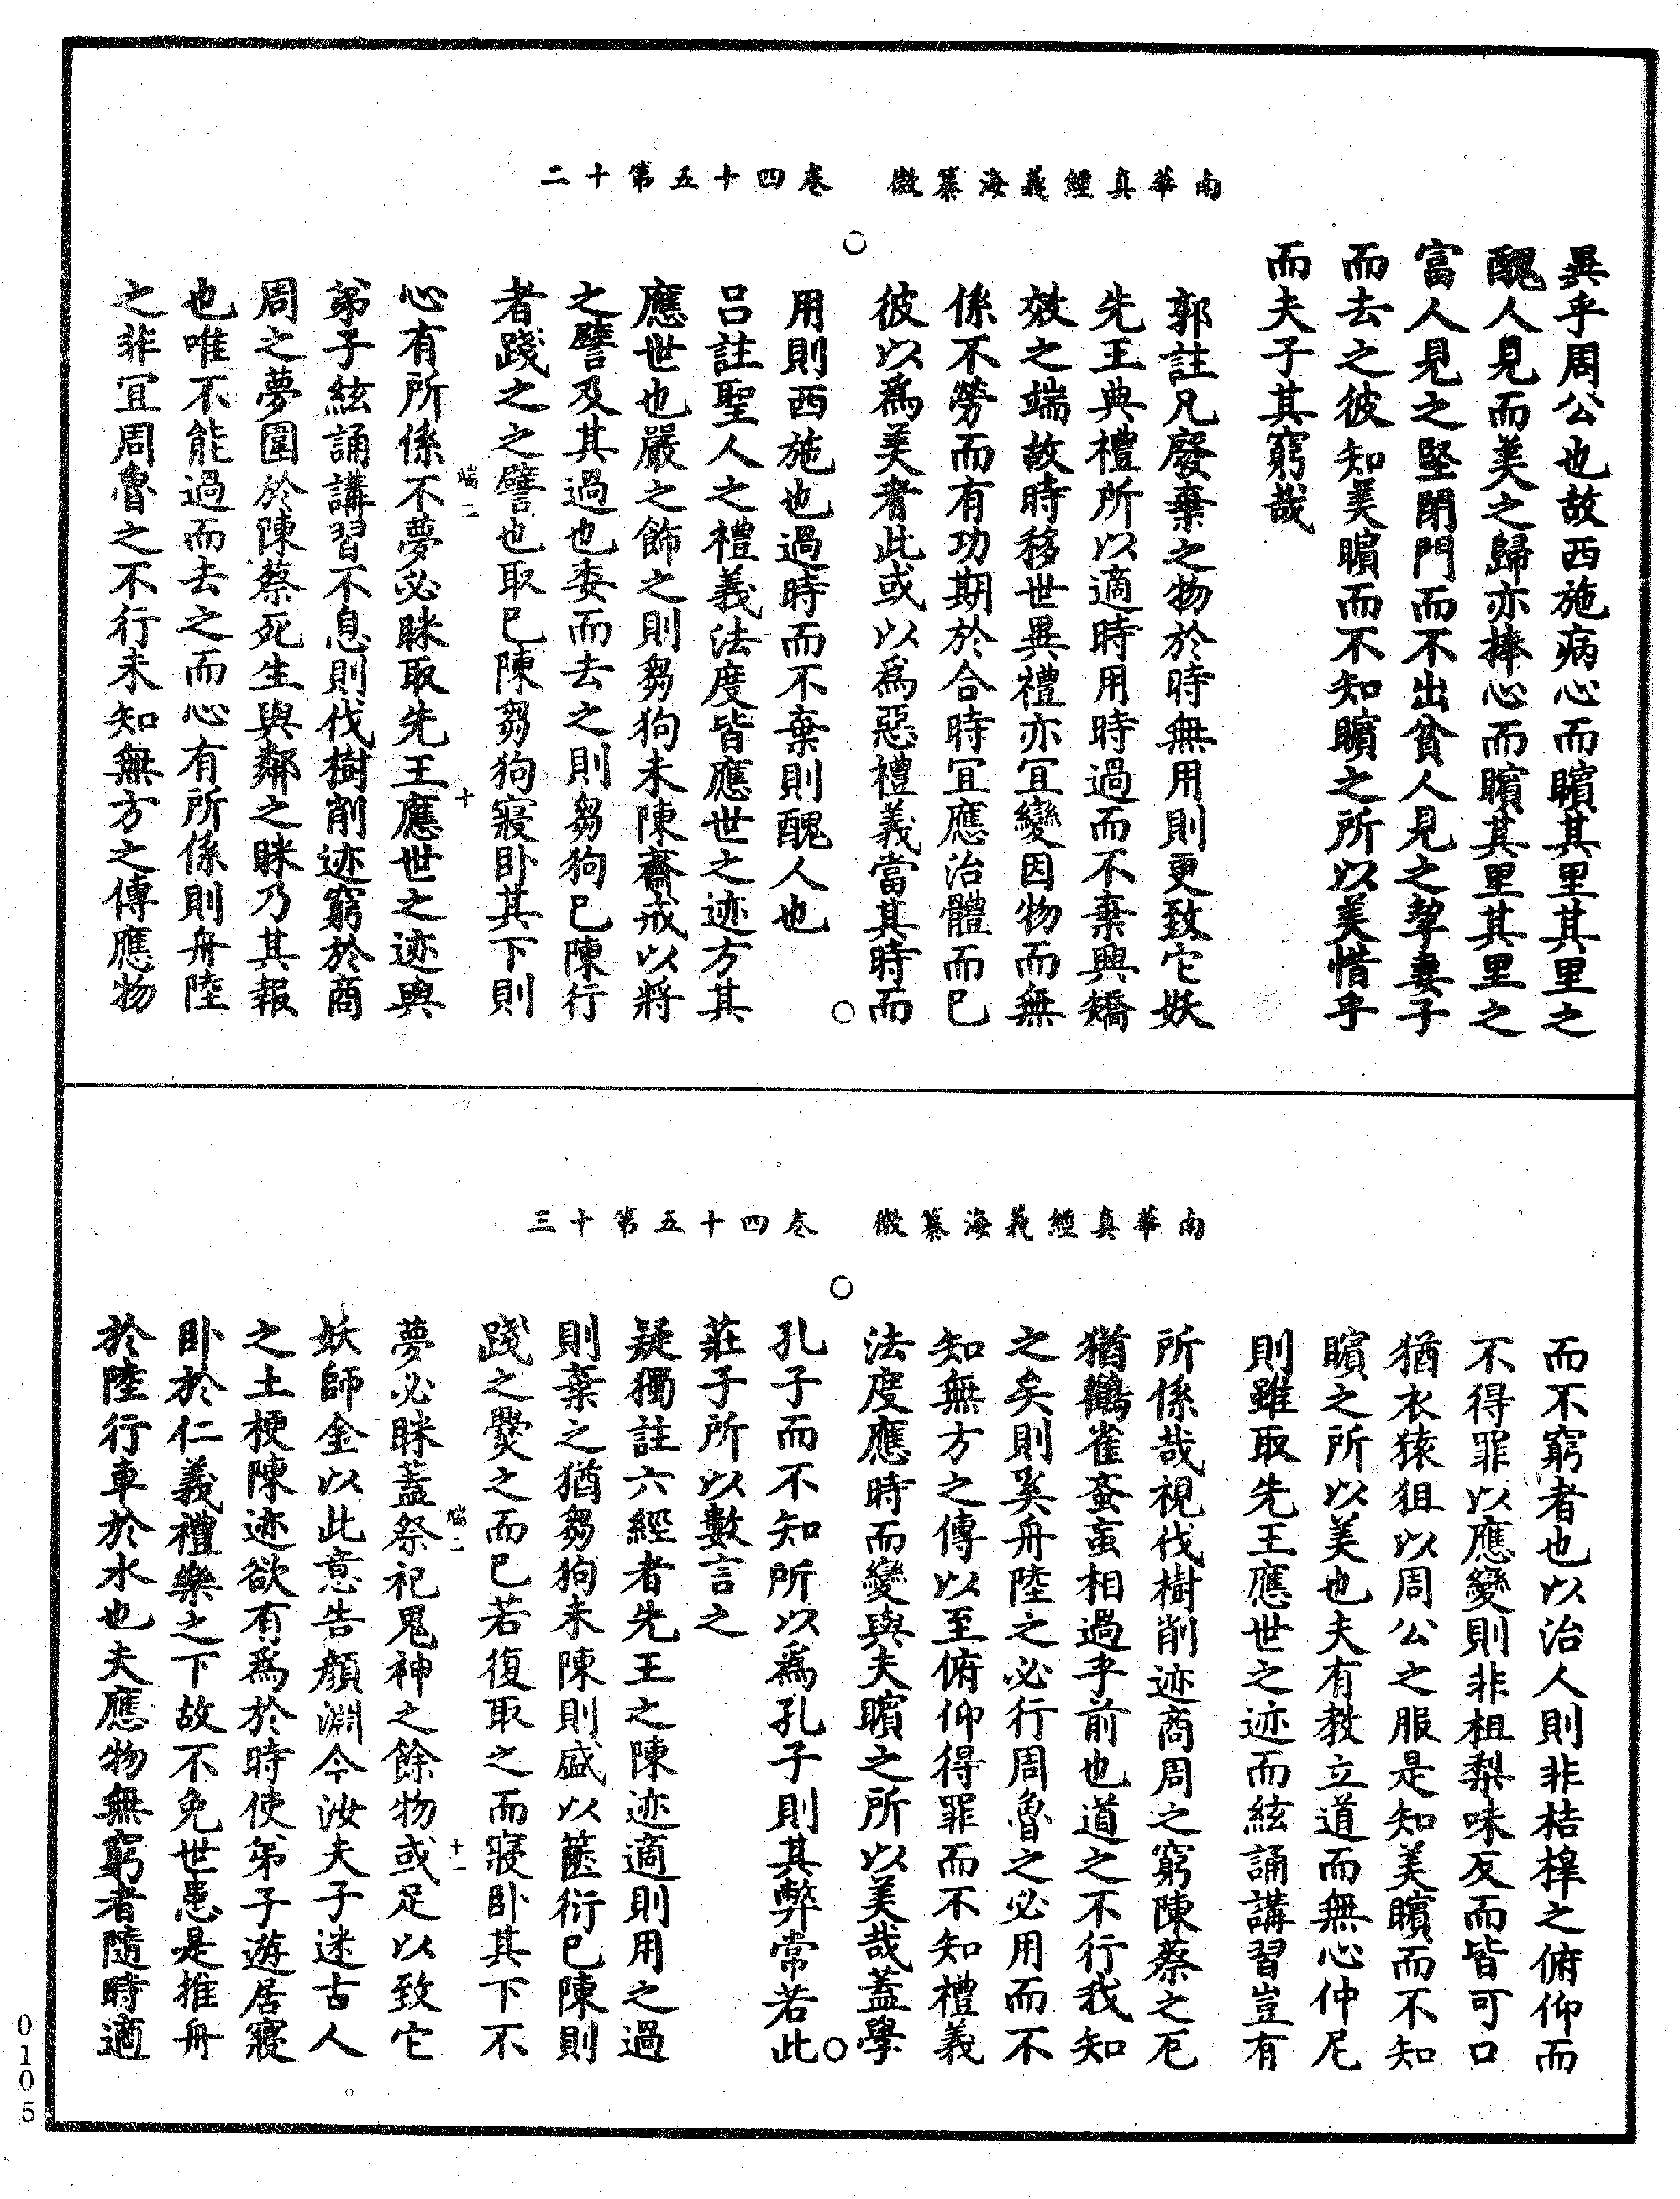 南華真經義海纂微　卷四十五第十二
異乎周公也故西施病心而矉其里其里之
醜人見而美之歸亦捧心而矉其里其里之
富人見之堅閉門而不出貧人見之挈妻子
而去之彼知美矉而不知矉之所以美惜乎
而夫子其窮哉
郭註凡廢棄之物於時無用則更致它妖
先王典禮所以適時用時過而不棄興矯
效之端故時移世異禮亦冝變因物而無
係不勞而有功期於合時冝應治體而已
彼以爲美者此或以爲惡禮義當其時而
用則西施也過時而不棄則醜人也
吕註聖人之禮義法度皆應世之迹方其
應世也嚴之飾之則芻狗未陳齋戒以將
之譬及其過也委而去之則芻狗已陳行
者踐之之譬也取已陳芻狗寢卧其下則
心有所係不夢必眯取先王應世之迹與
弟子絃誦講習不息則伐樹削迹窮於商
周之夢圍於陳蔡死生與鄰之眯乃其報
也唯不能過而去之而心有所係則舟陸
之非冝周魯之不行未知無方之傳應物
端二
十
南華真經義海纂微　卷四十五第十三
而不窮者也以治人則非桔橰之俯仰而
不得罪以應變則非柤梨味反而皆可口
猶衣猿狙以周公之服是知美矉而不知
矉之所以美也夫有教立道而無心仲尼
則雖取先王應世之迹而絃誦講習豈有
所係哉視伐樹削迹商周之窮陳蔡之厄
猶鸛雀蚉䖟相過乎前也道之不行我知
之矣則奚舟陸之必行周魯之必用而不
知無方之傳以至俯仰得罪而不知禮義
法度應時而變與夫矉之所以美哉蓋學
孔子而不知所以爲孔子則其弊常若此
莊子所以數言之
疑獨註六經者先王之陳迹適則用之過
則棄之猶芻狗未陳則盛以篋衍已陳則
踐之爨之而已若復取之而寢卧其下不
夢必眯蓋祭祀鬼神之餘物或足以致它
妖師金以此意告顏淵今汝夫子迷古人
之土梗陳迹欲有爲於時使弟子遊居寢
卧於仁義禮樂之下故不免世患是推舟
於陸行車於水也夫應物無窮者隨時適
端二
十一
0105